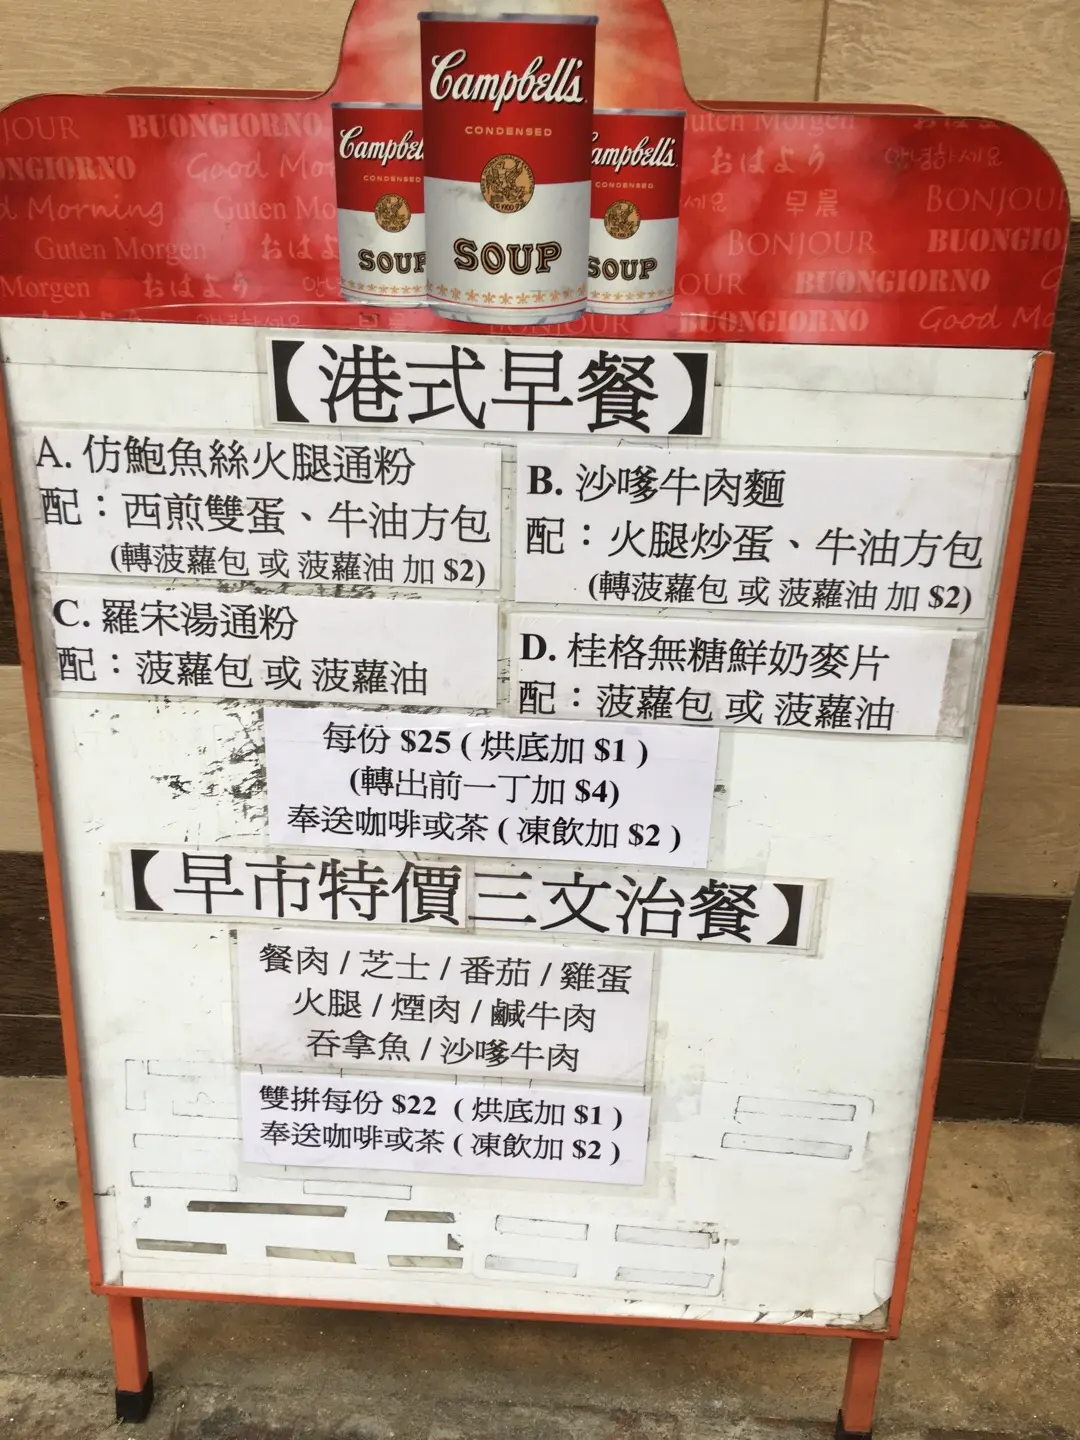 Campbell's
CONDENSED
SOUP
Campbell's
CONDENSED
SOUP
JOUR BUONGIORNO Guten Morgen
BUONGIORNO Good Mo おはよう 안녕하세요
Good Morning Guten Mo 세요 早晨 BONJOUR
Guten Morgen おはよう BONJOUR BUONGIO
Morgen おはよう OUR BUONGIORNO
안녕하세요 早晨 BONJOUR BUONGIORNO Good Mo
【港式早餐】
A. 仿鮑魚絲火腿通粉
配：西煎雙蛋、牛油方包
(轉菠蘿包 或 菠蘿油 加 $2)
B. 沙嗲牛肉麵
配：火腿炒蛋、牛油方包
(轉菠蘿包 或 菠蘿油 加 $2)
C. 羅宋湯通粉
配：菠蘿包 或 菠蘿油
D. 桂格無糖鮮奶麥片
配：菠蘿包 或 菠蘿油
每份 $25 ( 烘底加 $1 )
(轉出前一丁加 $4)
奉送咖啡或茶 ( 凍飲加 $2 )
【早市特價三文治餐】
餐肉 / 芝士 / 番茄 / 雞蛋
火腿 / 煙肉 / 鹹牛肉
吞拿魚 / 沙嗲牛肉
雙拼每份 $22 ( 烘底加 $1 )
奉送咖啡或茶 ( 凍飲加 $2 )